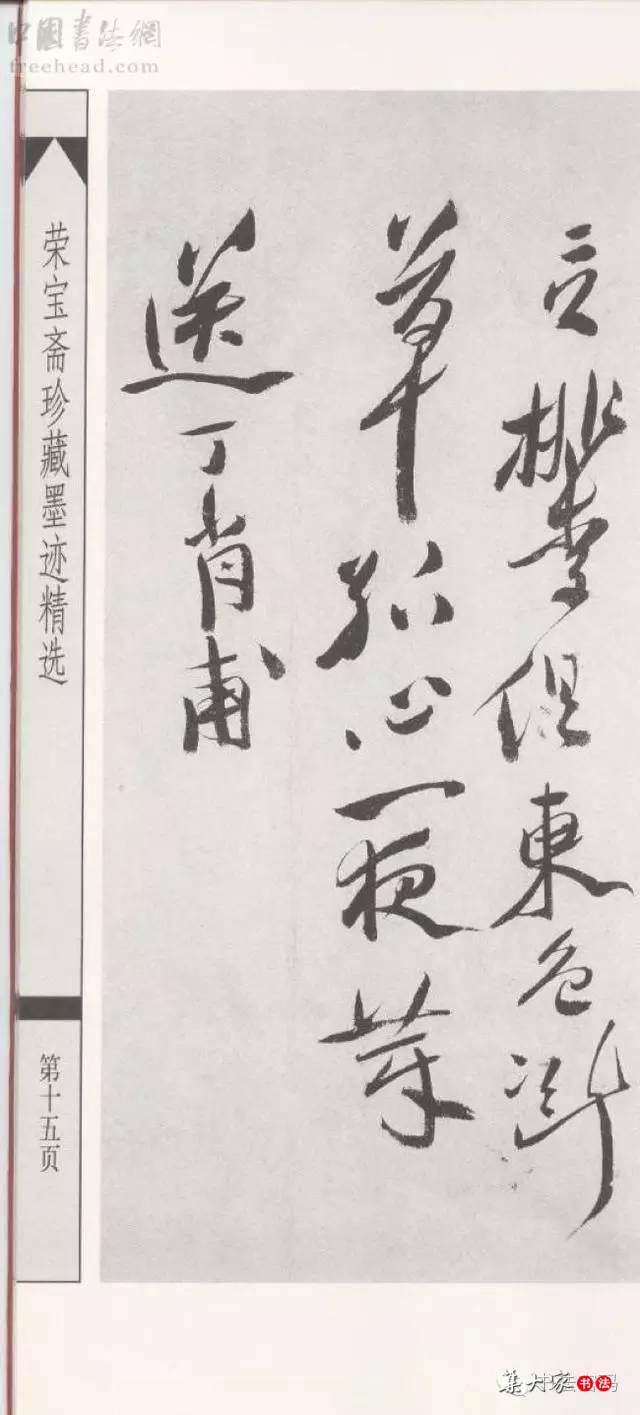 中國書法網
freehead.com
言桃李俱東色漸
草孤心一夜芽
送丁肖甫
荣宝斋珍藏墨迹精选
第十五页
集大家书法